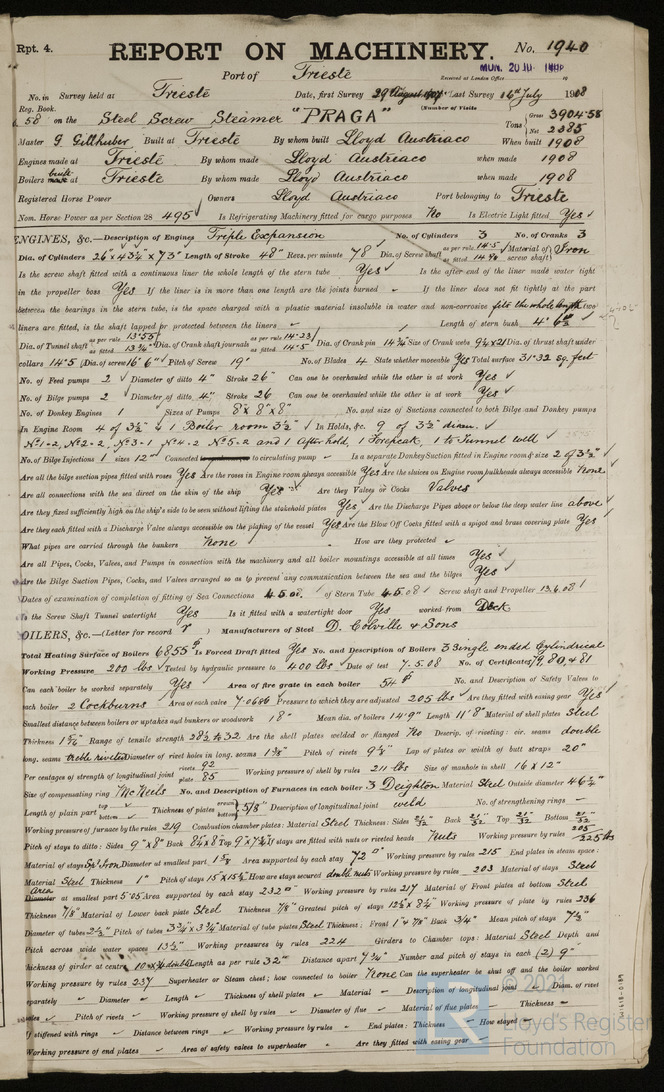 Rpt. 4. REPORT ON MACHINERY. No. 1940
Port of Trieste Received at London Office MON. 20 JUL 1908
No. in Survey held at Trieste Date, first Survey 29 August 1907 Last Survey 16th July 1908
Reg. Book. (Number of Visits
58 on the Steel Screw Steamer "PRAGA" Tons { Gross 3904.58 Net 2385
Master G. Gillhuber Built at Trieste By whom built Lloyd Austriaco When built 1908
Engines made at Trieste By whom made Lloyd Austriaco when made 1908
Boilers built at Trieste By whom made Lloyd Austriaco when made 1908
Registered Horse Power Owners Lloyd Austriaco Port belonging to Trieste
Nom. Horse Power as per Section 28 495 Is Refrigerating Machinery fitted for cargo purposes No Is Electric Light fitted Yes
ENGINES, &c.—Description of Engines Triple Expansion No. of Cylinders 3 No. of Cranks 3
Dia. of Cylinders 26 x 43¼ x 73" Length of Stroke 48" Revs. per minute 78 Dia. of Screw shaft as per rule 14.5 as fitted 14.90 Material of screw shaft Iron
Is the screw shaft fitted with a continuous liner the whole length of the stern tube Yes Is the after end of the liner made water tight
in the propeller boss Yes If the liner is in more than one length are the joints burned If the liner does not fit tightly at the part
between the bearings in the stern tube, is the space charged with a plastic material insoluble in water and non-corrosive fits the whole length If two
liners are fitted, is the shaft lapped or protected between the liners Length of stern bush 4' 6
Dia. of Tunnel shaft as per rule 13.55 as fitted 13¾ Dia. of Crank shaft journals as per rule 14.23 as fitted 14.5 Dia. of Crank pin 14¾ Size of Crank webs 9½x21 Dia. of thrust shaft under
collars 14.5 Dia. of screw 16' 6" Pitch of Screw 19' No. of Blades 4 State whether moveable Yes Total surface 31.32 sq. feet
No. of Feed pumps 2 Diameter of ditto 4" Stroke 26" Can one be overhauled while the other is at work Yes
No. of Bilge pumps 2 Diameter of ditto 4" Stroke 26" Can one be overhauled while the other is at work Yes
No. of Donkey Engines 1 Sizes of Pumps 8" x 8" x 8" No. and size of Suctions connected to both Bilge and Donkey pumps
In Engine Room 4 of 3½" & 1 Boiler room 3½" In Holds, &c. 9 of 3½" diam.
No 1-2, No 2-2, No 3-1 No 4-2 No 5-2 and 1 After hold, 1 Forepeak, 1 to Tunnel well
No. of Bilge Injections 1 sizes 12" Connected to circulating pump Is a separate Donkey Suction fitted in Engine room & size 2 of 3½"
Are all the bilge suction pipes fitted with roses Yes Are the roses in Engine room always accessible Yes Are the sluices on Engine room bulkheads always accessible None
Are all connections with the sea direct on the skin of the ship Yes Are they Valves or Cocks Valves
Are they fixed sufficiently high on the ship's side to be seen without lifting the stokehold plates Yes Are the Discharge Pipes above or below the deep water line above
Are they each fitted with a Discharge Valve always accessible on the plating of the vessel Yes Are the Blow Off Cocks fitted with a spigot and brass covering plate Yes
What pipes are carried through the bunkers None How are they protected
Are all Pipes, Cocks, Valves, and Pumps in connection with the machinery and all boiler mountings accessible at all times Yes
Are the Bilge Suction Pipes, Cocks, and Valves arranged so as to prevent any communication between the sea and the bilges Yes
Dates of examination of completion of fitting of Sea Connections 4.5.08. of Stern Tube 4.5.08 Screw shaft and Propeller 13.6.08
Is the Screw Shaft Tunnel watertight Yes Is it fitted with a watertight door Yes worked from Deck
BOILERS, &c.—(Letter for record r) Manufacturers of Steel D. Colville & Sons
Total Heating Surface of Boilers 6855 Is Forced Draft fitted Yes No. and Description of Boilers 3 Single ended Cylindrical
Working Pressure 200 lbs Tested by hydraulic pressure to 400 lbs Date of test 7.5.08 No. of Certificates 79, 80 & 81
Can each boiler be worked separately Yes Area of fire grate in each boiler 54 No. and Description of Safety Valves to
each boiler 2 Cockburns Area of each valve 7.0686 Pressure to which they are adjusted 205 lbs Are they fitted with easing gear Yes
Smallest distance between boilers or uptakes and bunkers or woodwork 18" Mean dia. of boilers 14' 9" Length 11' 8" Material of shell plates Steel
Thickness Range of tensile strength 28½ to 32 Are the shell plates welded or flanged No Descrip. of riveting: cir. seams double
long. seams treble riveted Diameter of rivet holes in long. seams 1⅜" Pitch of rivets Lap of plates or width of butt straps 20"
Per centages of strength of longitudinal joint rivets 92 plate 85 Working pressure of shell by rules 211 lbs Size of manhole in shell 16 x 12"
Size of compensating ring McNeils No. and Description of Furnaces in each boiler 3 Deighton Material Steel Outside diameter 46¾"
Length of plain part top bottom Thickness of plates crown bottom 5/8" Description of longitudinal joint weld No. of strengthening rings —
Working pressure of furnace by the rules 219 Combustion chamber plates: Material Steel Thickness: Sides 21/32 Back 21/32 Top 21/32 Bottom
Pitch of stays to ditto: Sides 9" x 8" Back Top If stays are fitted with nuts or riveted heads Nuts Working pressure by rules 225 lbs
Material of stays Spl Iron Diameter at smallest part 1⅝ Area supported by each stay 72 Working pressure by rules 215 End plates in steam space:
Material Steel Thickness 1" Pitch of stays 15 x 15½ How are stays secured double nuts Working pressure by rules 203 Material of stays Steel
Area at smallest part 5.05 Area supported by each stay 232 Working pressure by rules 217 Material of Front plates at bottom Steel
Thickness 7/8" Material of Lower back plate Steel Thickness 7/8" Greatest pitch of stays Working pressure of plate by rules 236
Diameter of tubes 2½" Pitch of tubes 3¾ x 3¾ Material of tube plates Steel Thickness: Front 1" & 7/8" Back 3/4" Mean pitch of stays 7½"
Pitch across wide water spaces 13½" Working pressures by rules 224 Girders to Chamber tops: Material Steel Depth and
thickness of girder at centre Length as per rule 32" Distance apart 7¾" Number and pitch of stays in each (2) 9"
Working pressure by rules 237 Superheater or Steam chest; how connected to boiler None Can the superheater be shut off and the boiler worked
separately Diameter Length Thickness of shell plates Material Description of longitudinal joint Diam. of rivet
holes Pitch of rivets Working pressure of shell by rules Diameter of flue Material of flue plates Thickness
If stiffened with rings Distance between rings Working pressure by rules End plates: Thickness How stayed
Working pressure of end plates Area of safety valves to superheater Are they fitted with easing gear
© 2021
Lloyd's Register
Foundation